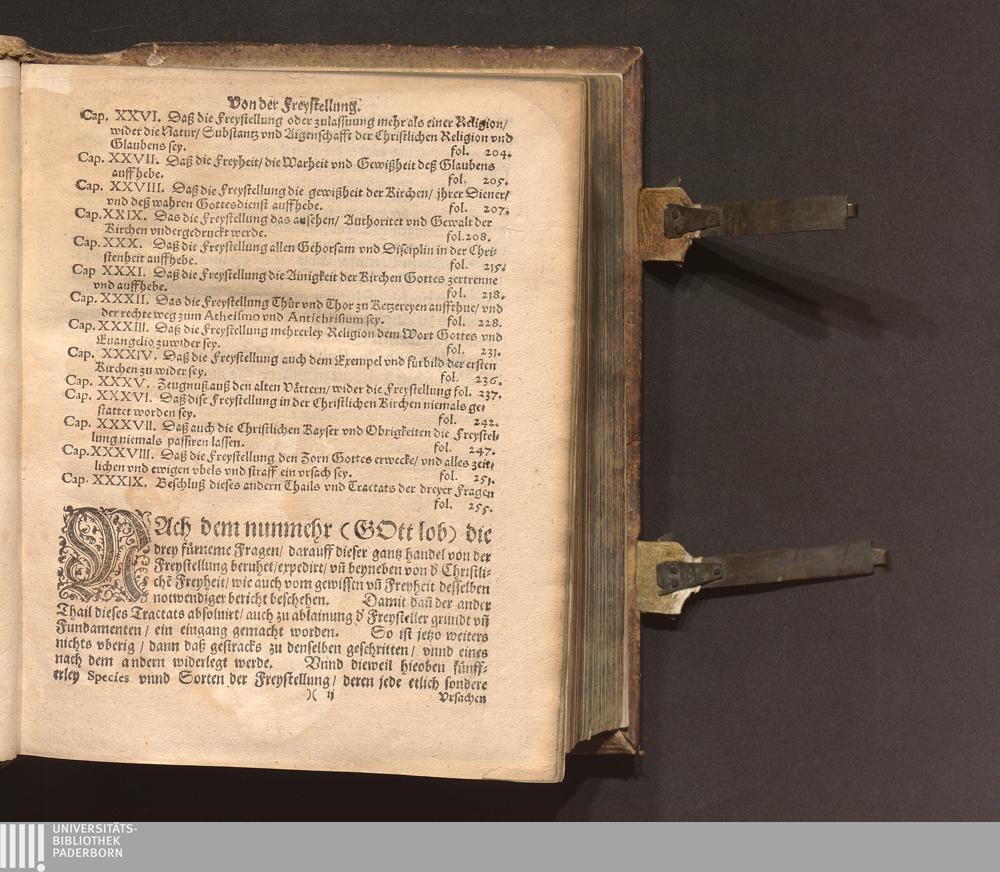 Von der Freystellung.
Cap. XXVI. Daß die Freystellung oder zulassuung mehr als einer Religion/
wider die Natur/ Substantz vnd Aigenschafft der Christlichen Religion vnd
Glaubens sey. fol. 204.
Cap. XXVII. Daß die Freyheit/ die Warheit vnd Gewißheit deß Glaubens
auffhebe. fol. 205.
Cap. XXVIII. Daß die Freystellung die gewißheit der Kirchen/ jhrer Diener/
vnd deß wahren Gottesdienst auffhebe. fol. 207.
Cap. XXIX. Das die Freystellung das ansehen/ Authoritet vnd Gewalt der
Kirchen vndergedruckt werde. fol. 208.
Cap. XXX. Daß die Freystellung allen Gehorsam vnd Disciplin in der Chri-
stenheit auffhebe. fol. 215.
Cap XXXI. Daß die Freystellung die Ainigkeit der Kirchen Gottes zertrenne
vnd auffhebe. fol. 218.
Cap. XXXII. Das die Freystellung Thür vnd Thor zu Ketzereyen auffthue/ vnd
der rechte weg zum Atheismo vnd Antichristum sey. fol. 228.
Cap. XXXIII. Daß die Freystellung mehrerley Religion dem Wort Gottes vnd
Euangelio zuwider sey. fol. 231.
Cap. XXXIV. Daß die Freystellung auch dem Exempel vnd fürbild der ersten
Kirchen zu wider sey. fol. 236.
Cap. XXXV. Zeugnuß auß den alten Vättern/ wider die Freystellung fol. 237.
Cap. XXXVI. Daß dise Freystellung in der Christlichen Kirchen niemals ge-
stattet worden sey. fol. 242.
Cap. XXXVII. Daß auch die Christlichen Kayser vnd Obrigkeiten die Freystel-
lung niemals passiren lassen. fol. 247.
Cap. XXXVIII. Daß die Freystellung den Zorn Gottes erwecke/ vnd alles zeit-
lichen vnd ewigen vbels vnd straff ein vrsach sey. fol. 251.
Cap. XXXIX. Beschluß dieses andern Thails vnd Tractats der dreyer Fragen
fol. 255.
NAch dem nunmehr (GOtt lob) die
drey fürneme Fragen/ darauff dieser gantz handel von der
Freystellung beruhet/ expedirt/ vñ beyneben von d' Christli-
chẽ Freyheit/ wie auch vom gewissen vñ Freyheit desselben
notwendiger bericht beschehen. Damit dañ der ander
Thail dieses Tractats absoluirt/ auch zu ablainung d' Freysteller grundt vñ
Fundamenten/ ein eingang gemacht worden. So ist jetzo weiters
nichts vberig/ dann daß gestracks zu denselben geschritten/ vnnd eines
nach dem andern widerlegt werde. Vnnd dieweil hieoben fünff-
erley Species vnnd Sorten der Freystellung/ deren jede etlich sondere
)( ij Vrsachen
UNIVERSITÄTS-
BIBLIOTHEK
PADERBORN